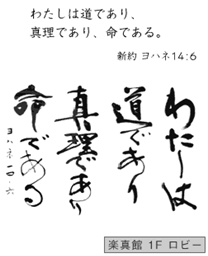 わたしは道であり、
真理であり、命である。
新約 ヨハネ14:6
わたしは
道であり
真理であり
命である
ヨハネ一四・六
楽真館 1F ロビー